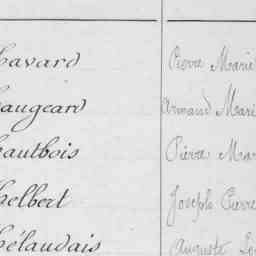 havard Pierre Marie
haugeard Armand Mari
hautbois Pierre Mar
helbert Joseph Pierre
hélaudais Auguste